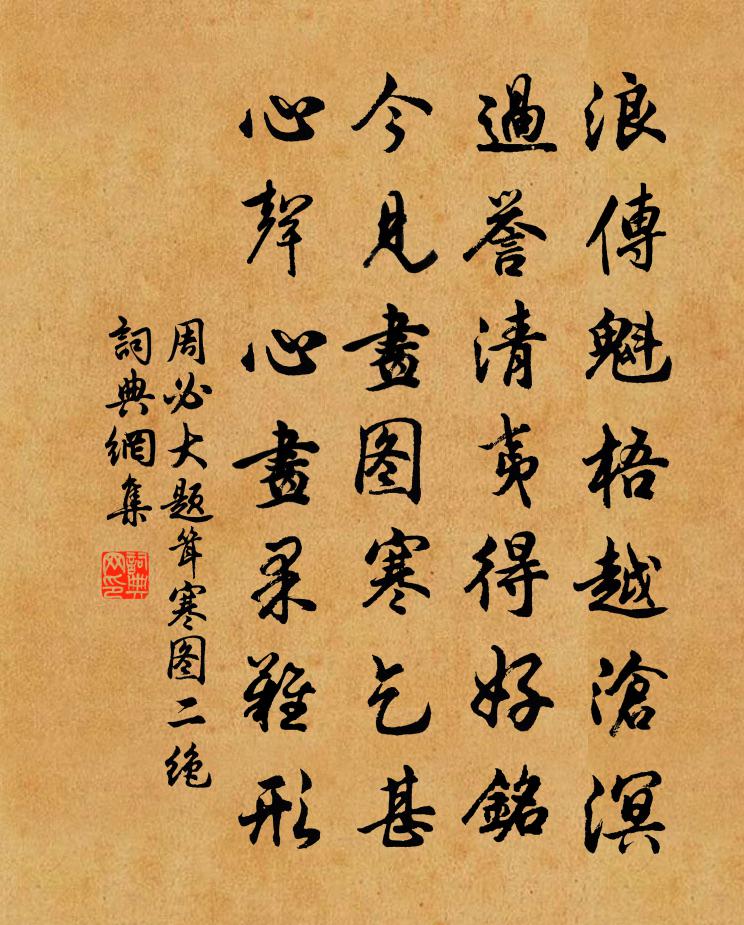 浪傳魁梧越滄溟
過譽清夷得好銘
今見畫图寒乞甚
心聲心畫果難形
周必大题耸寒图二绝
詞典網集
詞典网印